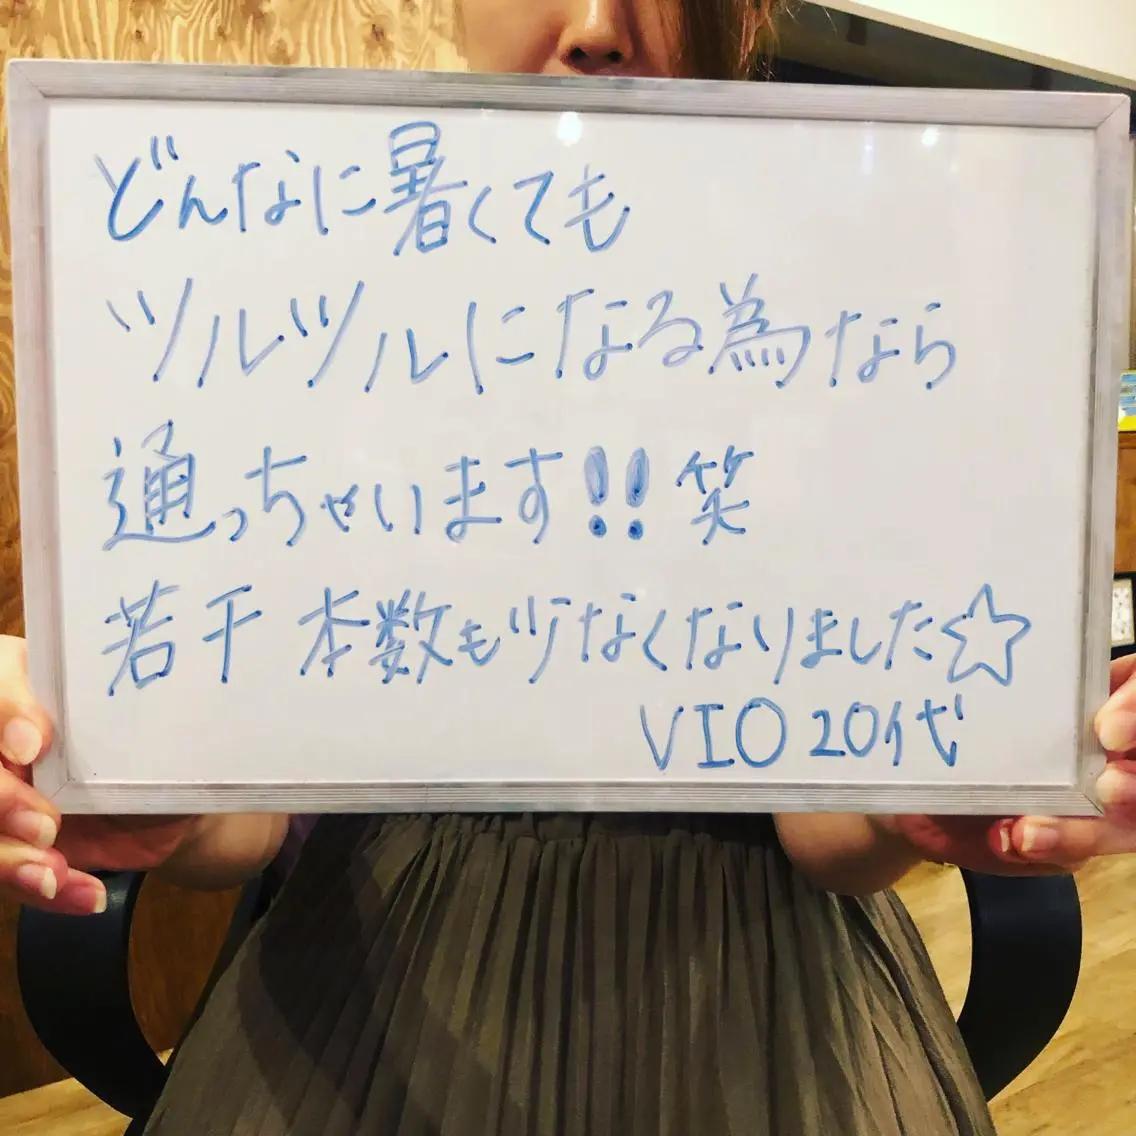 どんなに暑くても
ツルツルになる為なら
通っちゃいます!!笑
若干 本数も少なくなりました☆
VIO 20代